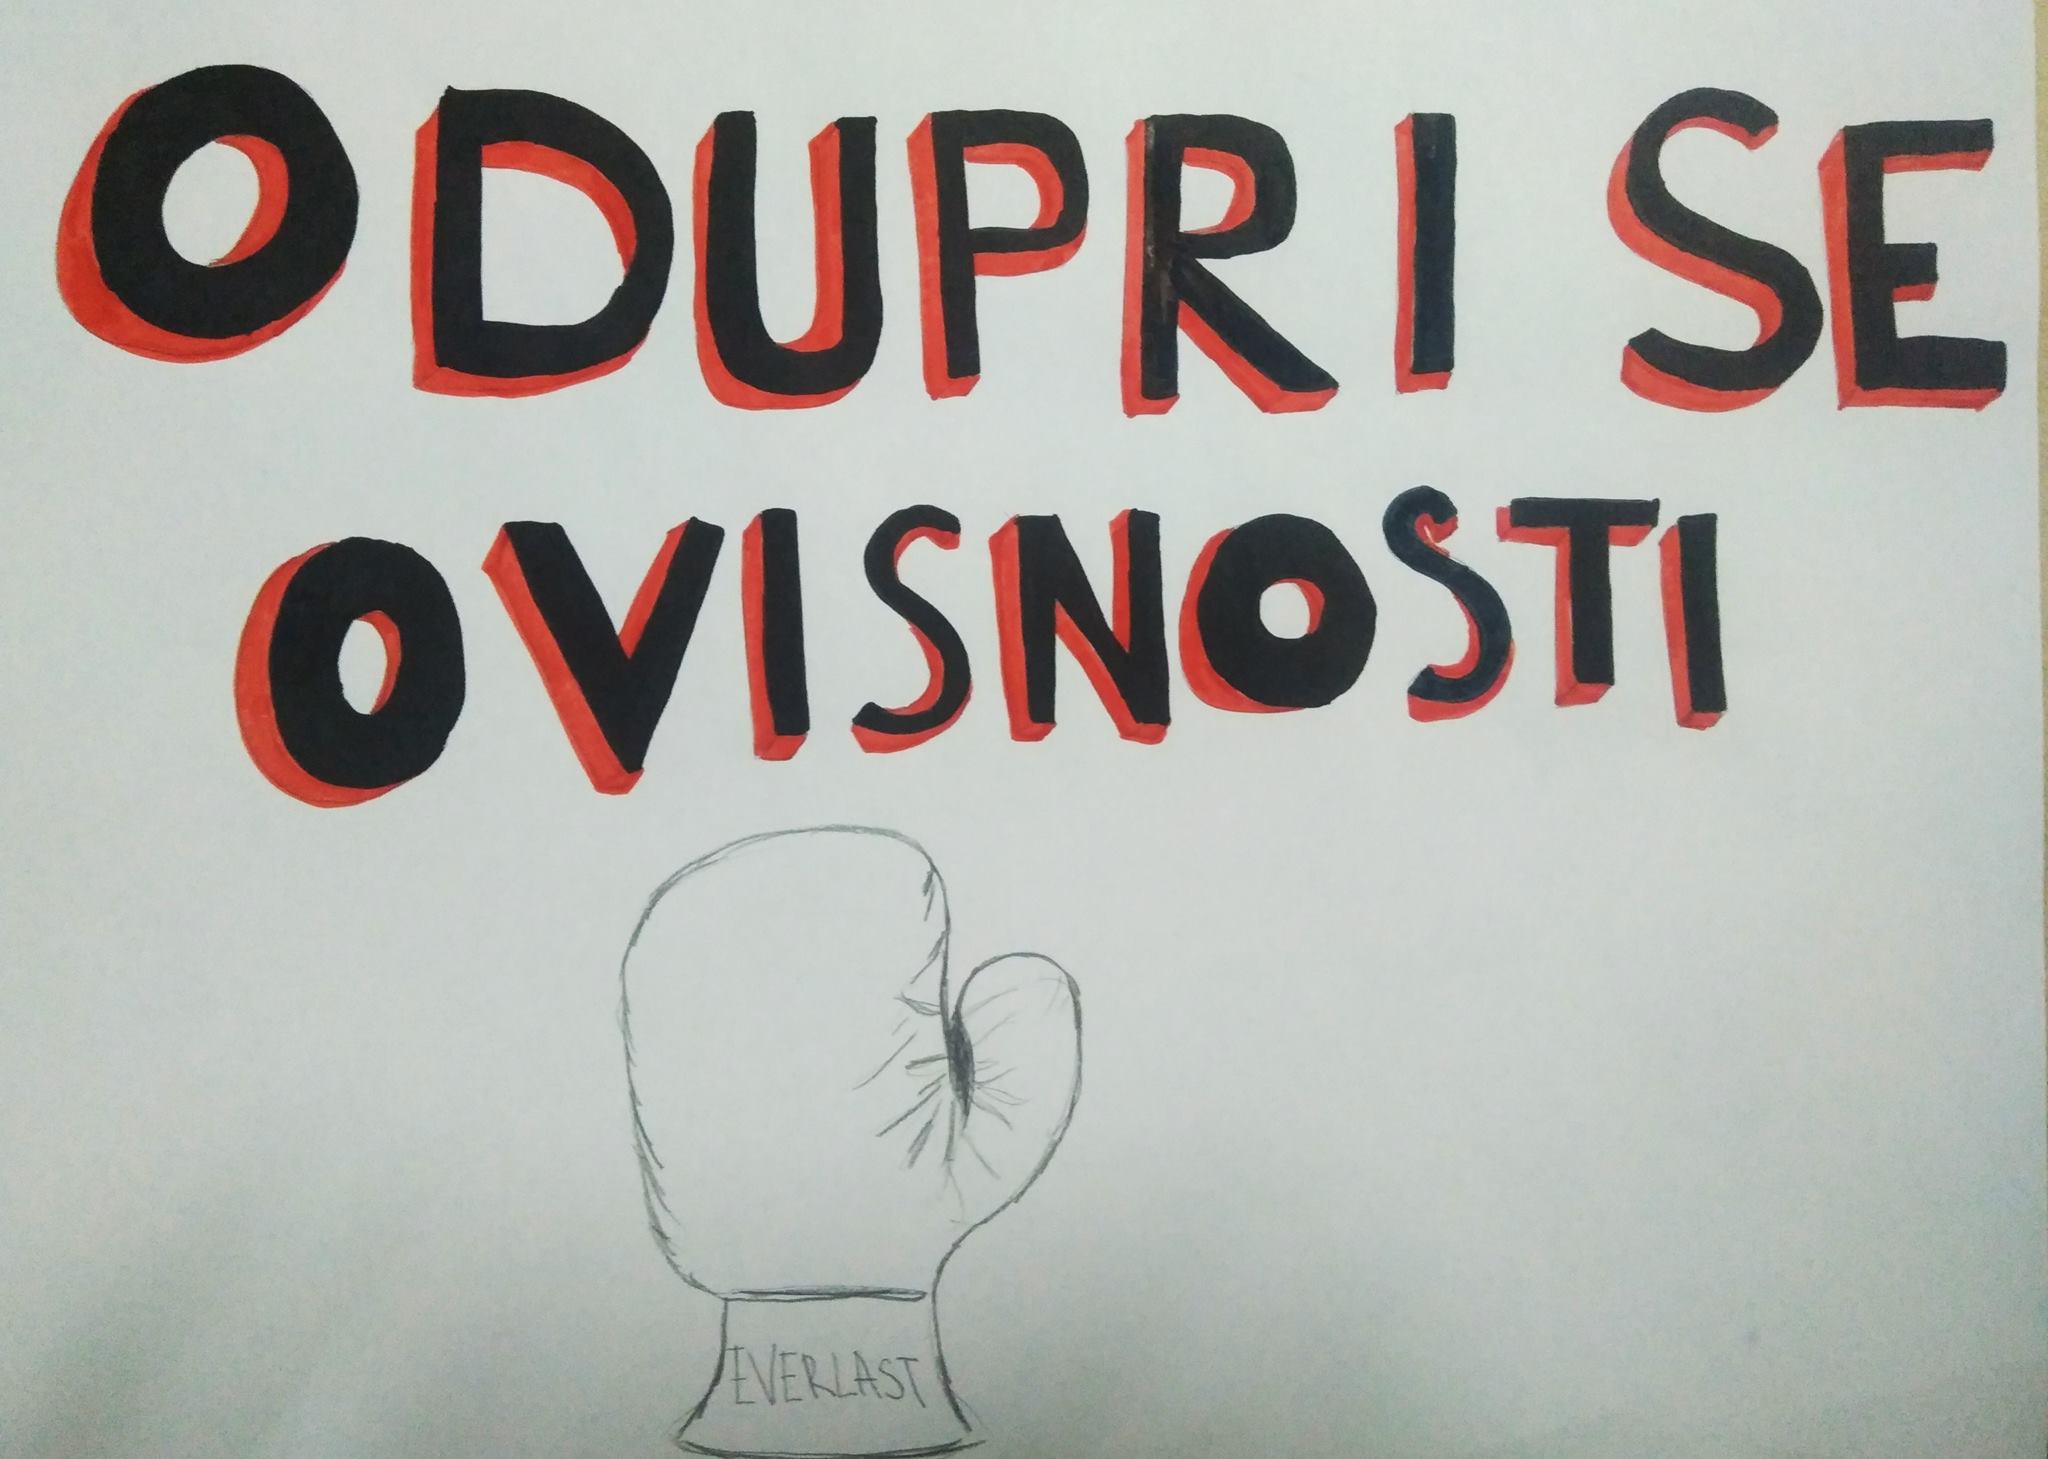 ODUPRI SE
OVISNOSTI
EVERLAST